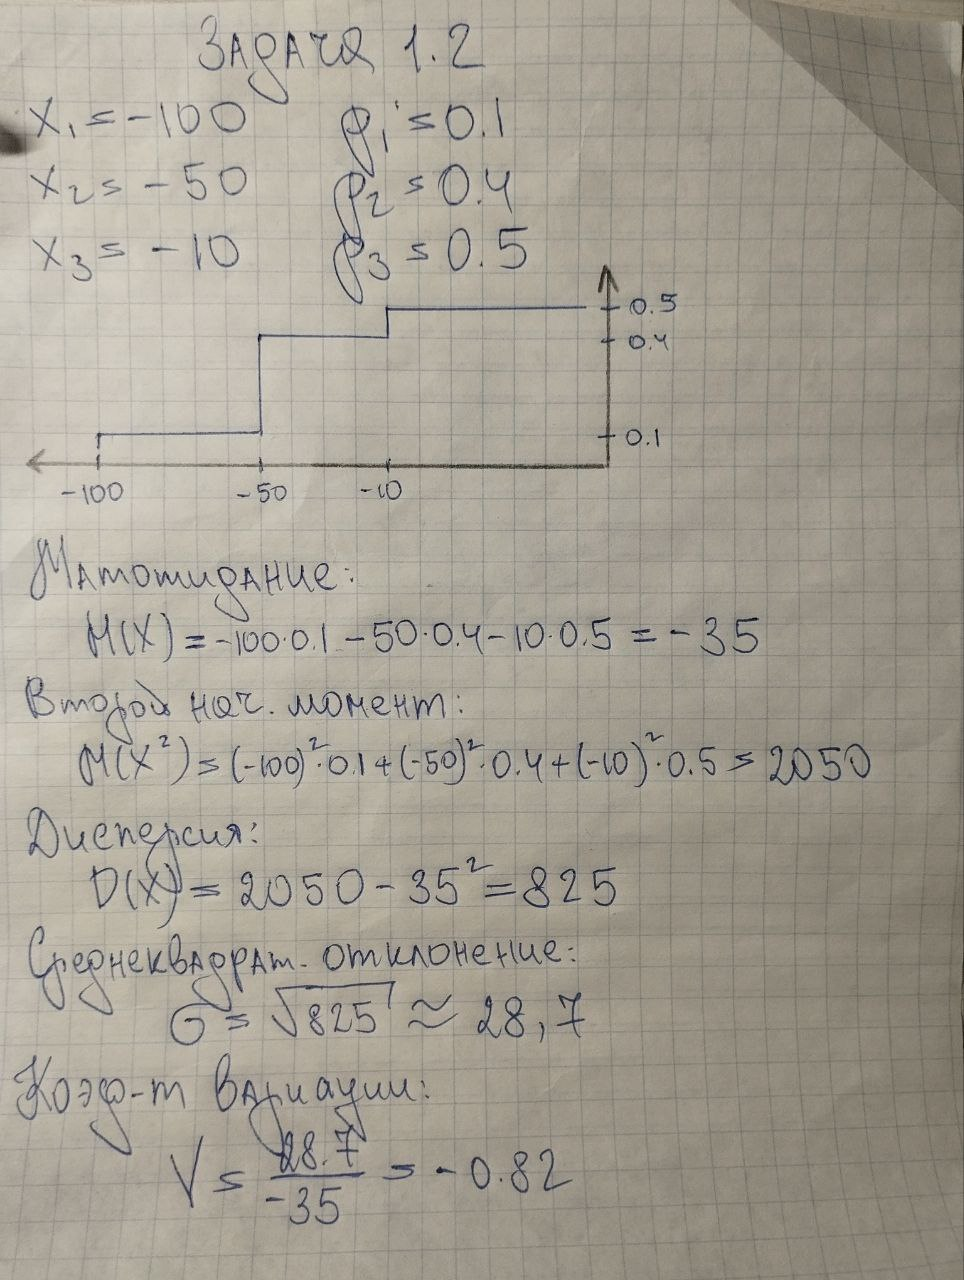 Задача 1.2
x₁ = -100 p₁ = 0.1
x₂ = -50 p₂ = 0.4
x₃ = -10 p₃ = 0.5
0.5
0.4
0.1
-100 -50 -10
Матожидание:
M(X) = -100·0.1 - 50·0.4 - 10·0.5 = -35
Второй нач. момент:
M(X²) = (-100)²·0.1 + (-50)²·0.4 + (-10)²·0.5 = 2050
Дисперсия:
D(X) = 2050 - 35² = 825
Среднеквадрат. отклонение:
σ = √825 ≈ 28,7
Коэф-т вариации:
V = 28.7 / -35 = -0.82